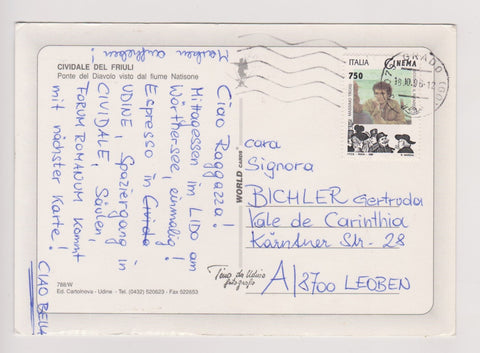 CIVIDALE DEL FRIULI
Ponte del Diavolo visto dal fiume Natisone
Marken aufheben!
Ciao Raggazza!
Mittagessen im LIDO am
Wörthersee, einmalig!
Espresso in Civida
UDINE, Spaziergang in
CIVIDALE, Säulen,
FORUM ROMANUM kommt
mit nächster Karte!
CIAO BELLA
786W
Ed. Cartolnova - Udine - Tel. (0432) 520623 - Fax 522653
WORLD CARDS
Tino da Udine
fotografo
ITALIA CINEMA
750
GRADO (GO)
18.10.96-12
cara
Signora
BICHLER Gertruda
Vale de Carinthia
Kärntner Str. - 28
A/8700 LEOBEN